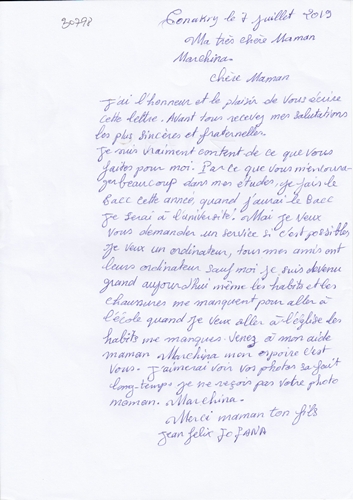 30798
Conakry le 7 juillet 2019
Ma très chère Maman
Marchina.
Chère Maman
J'ai l'honneur et le plaisir de vous écrire
cette lettre. Avant tous recevez mes salutations
les plus sincères et fraternelles.
Je suis vraiment content de ce que vous
faites pour moi. Par ce que vous m'encoura-
ger beaucoup dans mes études, je fais le
Bacc cette année, quand j'aurai le Bacc
je serai à l'université. Mai je veux
vous demander un service si c'est possible
je veux un ordinateur, tous mes amis ont
leurs ordinateur sauf moi je suis devenu
grand aujourd'hui même les habits et les
chaussures me manquent pour aller à
l'école quand je veux aller à l'église les
habits me manques. Venez à mon aide
maman Marchina mon espoire c'est
Vous. J'aimerai voir vos photos sa fait
long-temps je ne reçois pas votre photo
maman. Marchina.
Merci maman ton fils
Jean félix